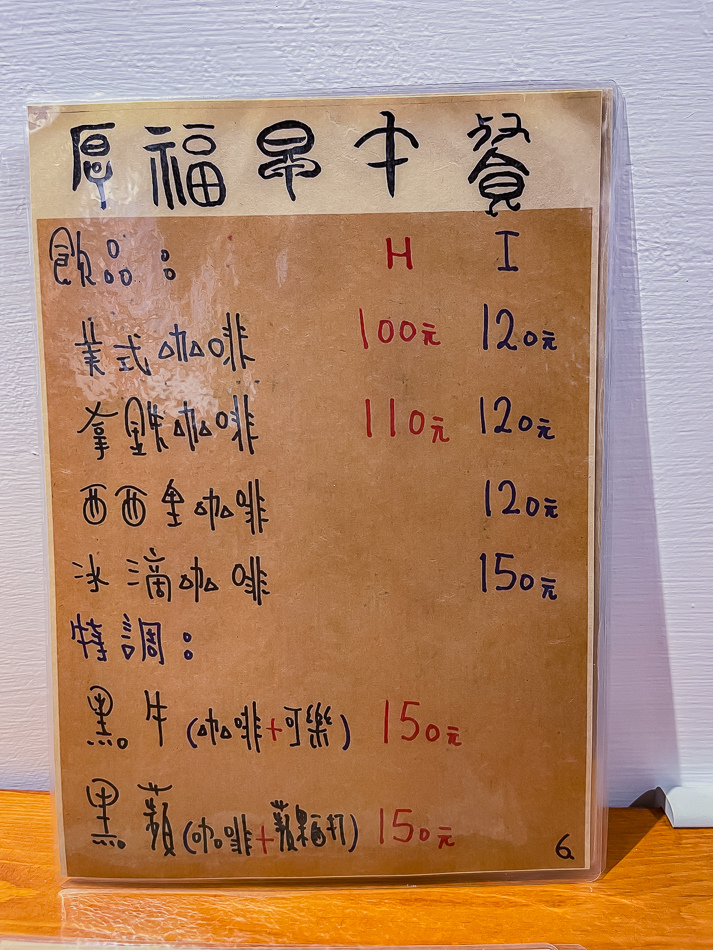 厚福早午餐
飲品： H I
美式咖啡 100元 120元
拿鐵咖啡 110元 120元
西西里咖啡 120元
冰滴咖啡 150元
特調：
黑牛(咖啡+可樂) 150元
黑蘋(咖啡+蘋果西打) 150元
6